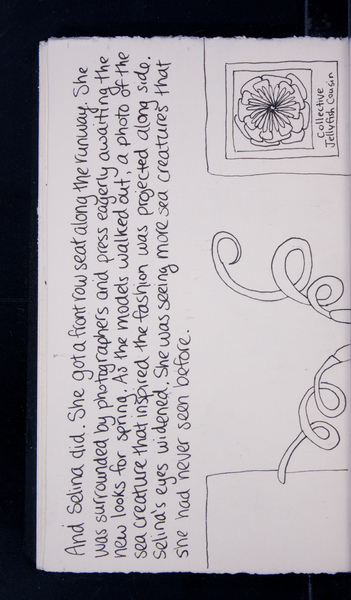 And Selina did. She got a front row seat along the runway. She
was surrounded by photographers and press eagerly awaiting the
new looks for spring. As the models walked out, a photo of the
sea creature that inspired the fashion was projected along side.
Selina's eyes widened. She was seeing more sea creatures that
she had never seen before.
Collective
Jellyfish Cousin